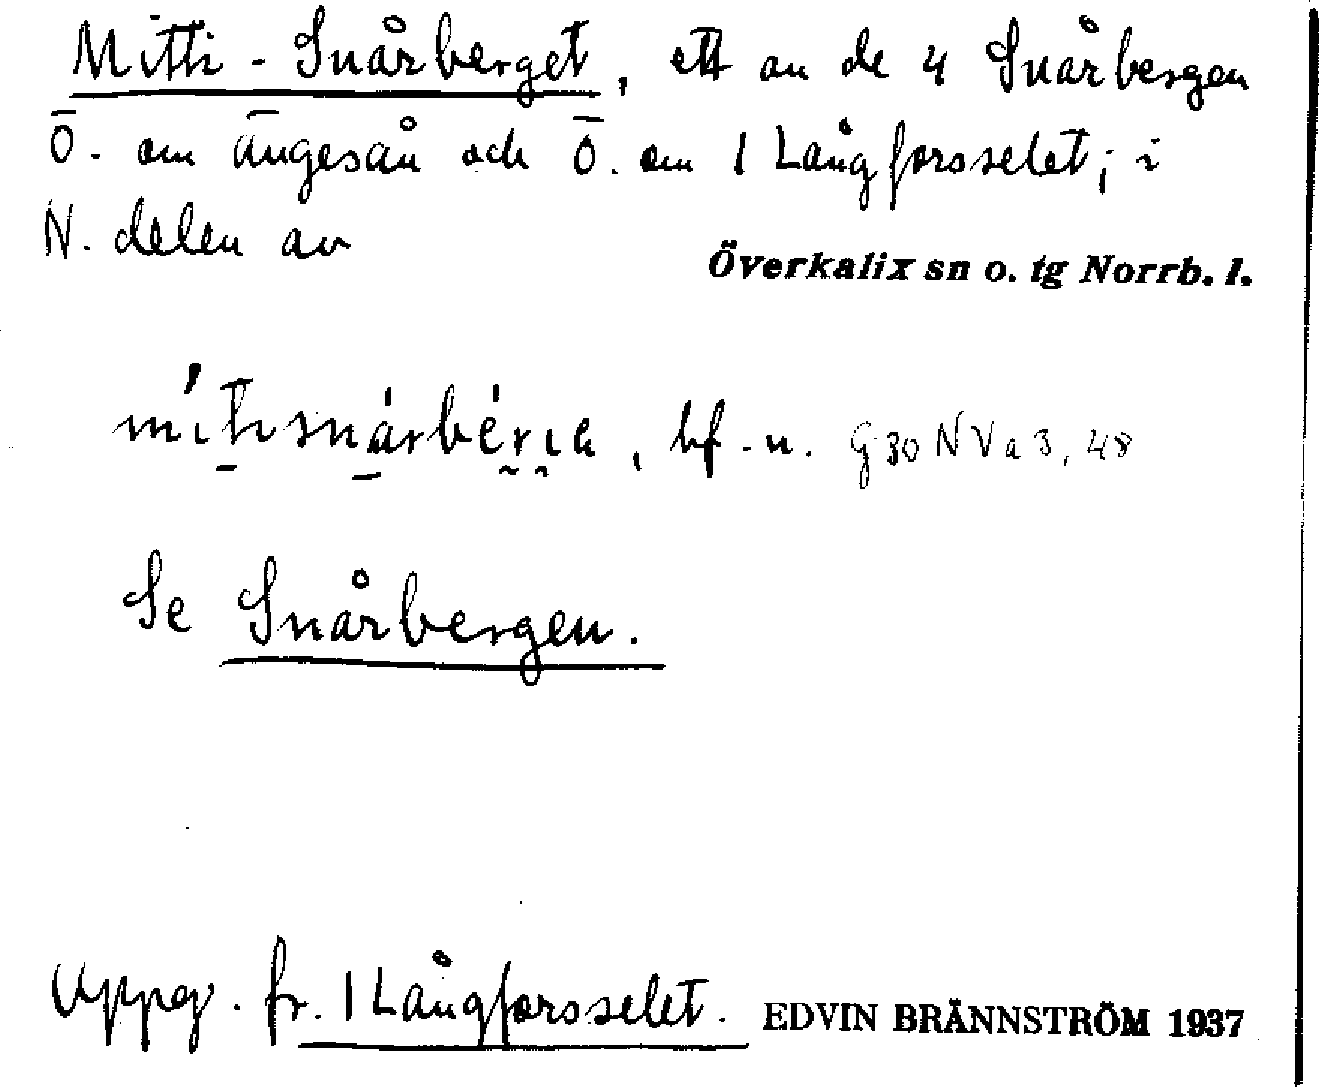 Mitti-Snårberget, ett av de 4 Snårbergen
Ö. om Ängesån och Ö. om 1 Långforsselet, i
N. delen av
Överkalix sn o. tg Norrb. l.
bf. n. G 30 NV a 3, 48
Se Snårbergen.
Uppg. fr. 1 Långforsselet. EDVIN BRÄNNSTRÖM 1937